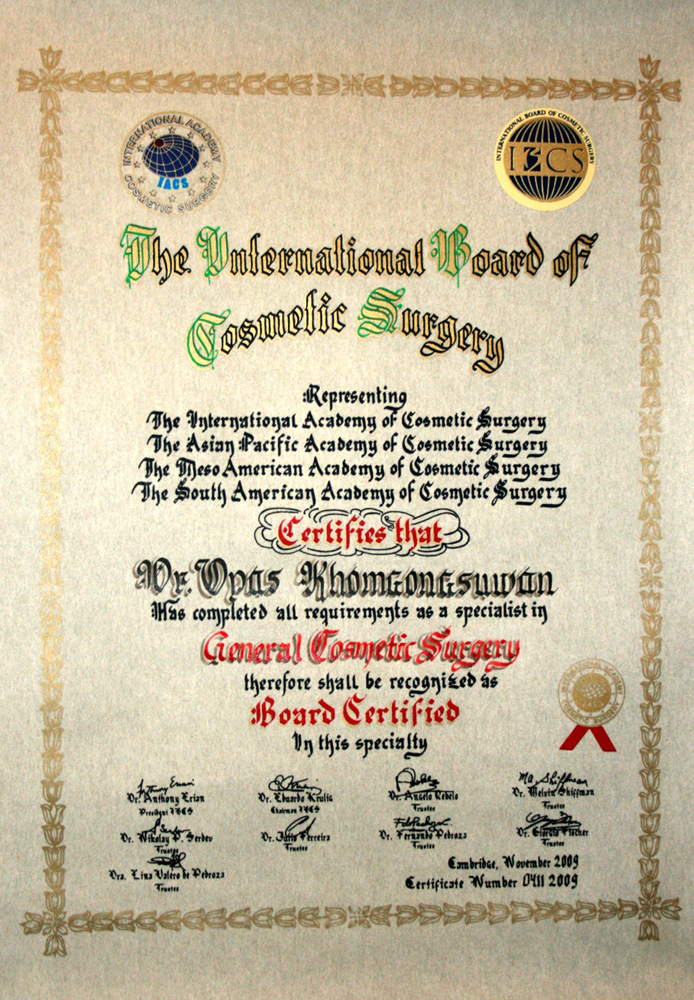 INTERNATIONAL ACADEMY
IACS
COSMETIC SURGERY
INTERNATIONAL BOARD OF COSMETIC SURGERY
IBCS
The International Board of
Cosmetic Surgery
Representing
The International Academy of Cosmetic Surgery
The Asian Pacific Academy of Cosmetic Surgery
The Meso American Academy of Cosmetic Surgery
The South American Academy of Cosmetic Surgery
Certifies that
Dr. Opas Khomgongsuwan
Has completed all requirements as a specialist in
General Cosmetic Surgery
therefore shall be recognized as
Board Certified
In this specialty
Dr. Anthony Erian
President IBCS
Dr. Eduardo Krulig
Chairman IBCS
Dr. Angelo Rebelo
Trustee
Dr. Melvin Shiffman
Trustee
Dr. Nikolay P. Serdev
Trustee
Dr. Julio Ferreira
Trustee
Dr. Fernando Pedroza
Trustee
Dr. Giorgio Fischer
Trustee
Dra. Lina Valero de Pedroza
Trustee
Cambridge, November 2009
Certificate Number 0411 2009